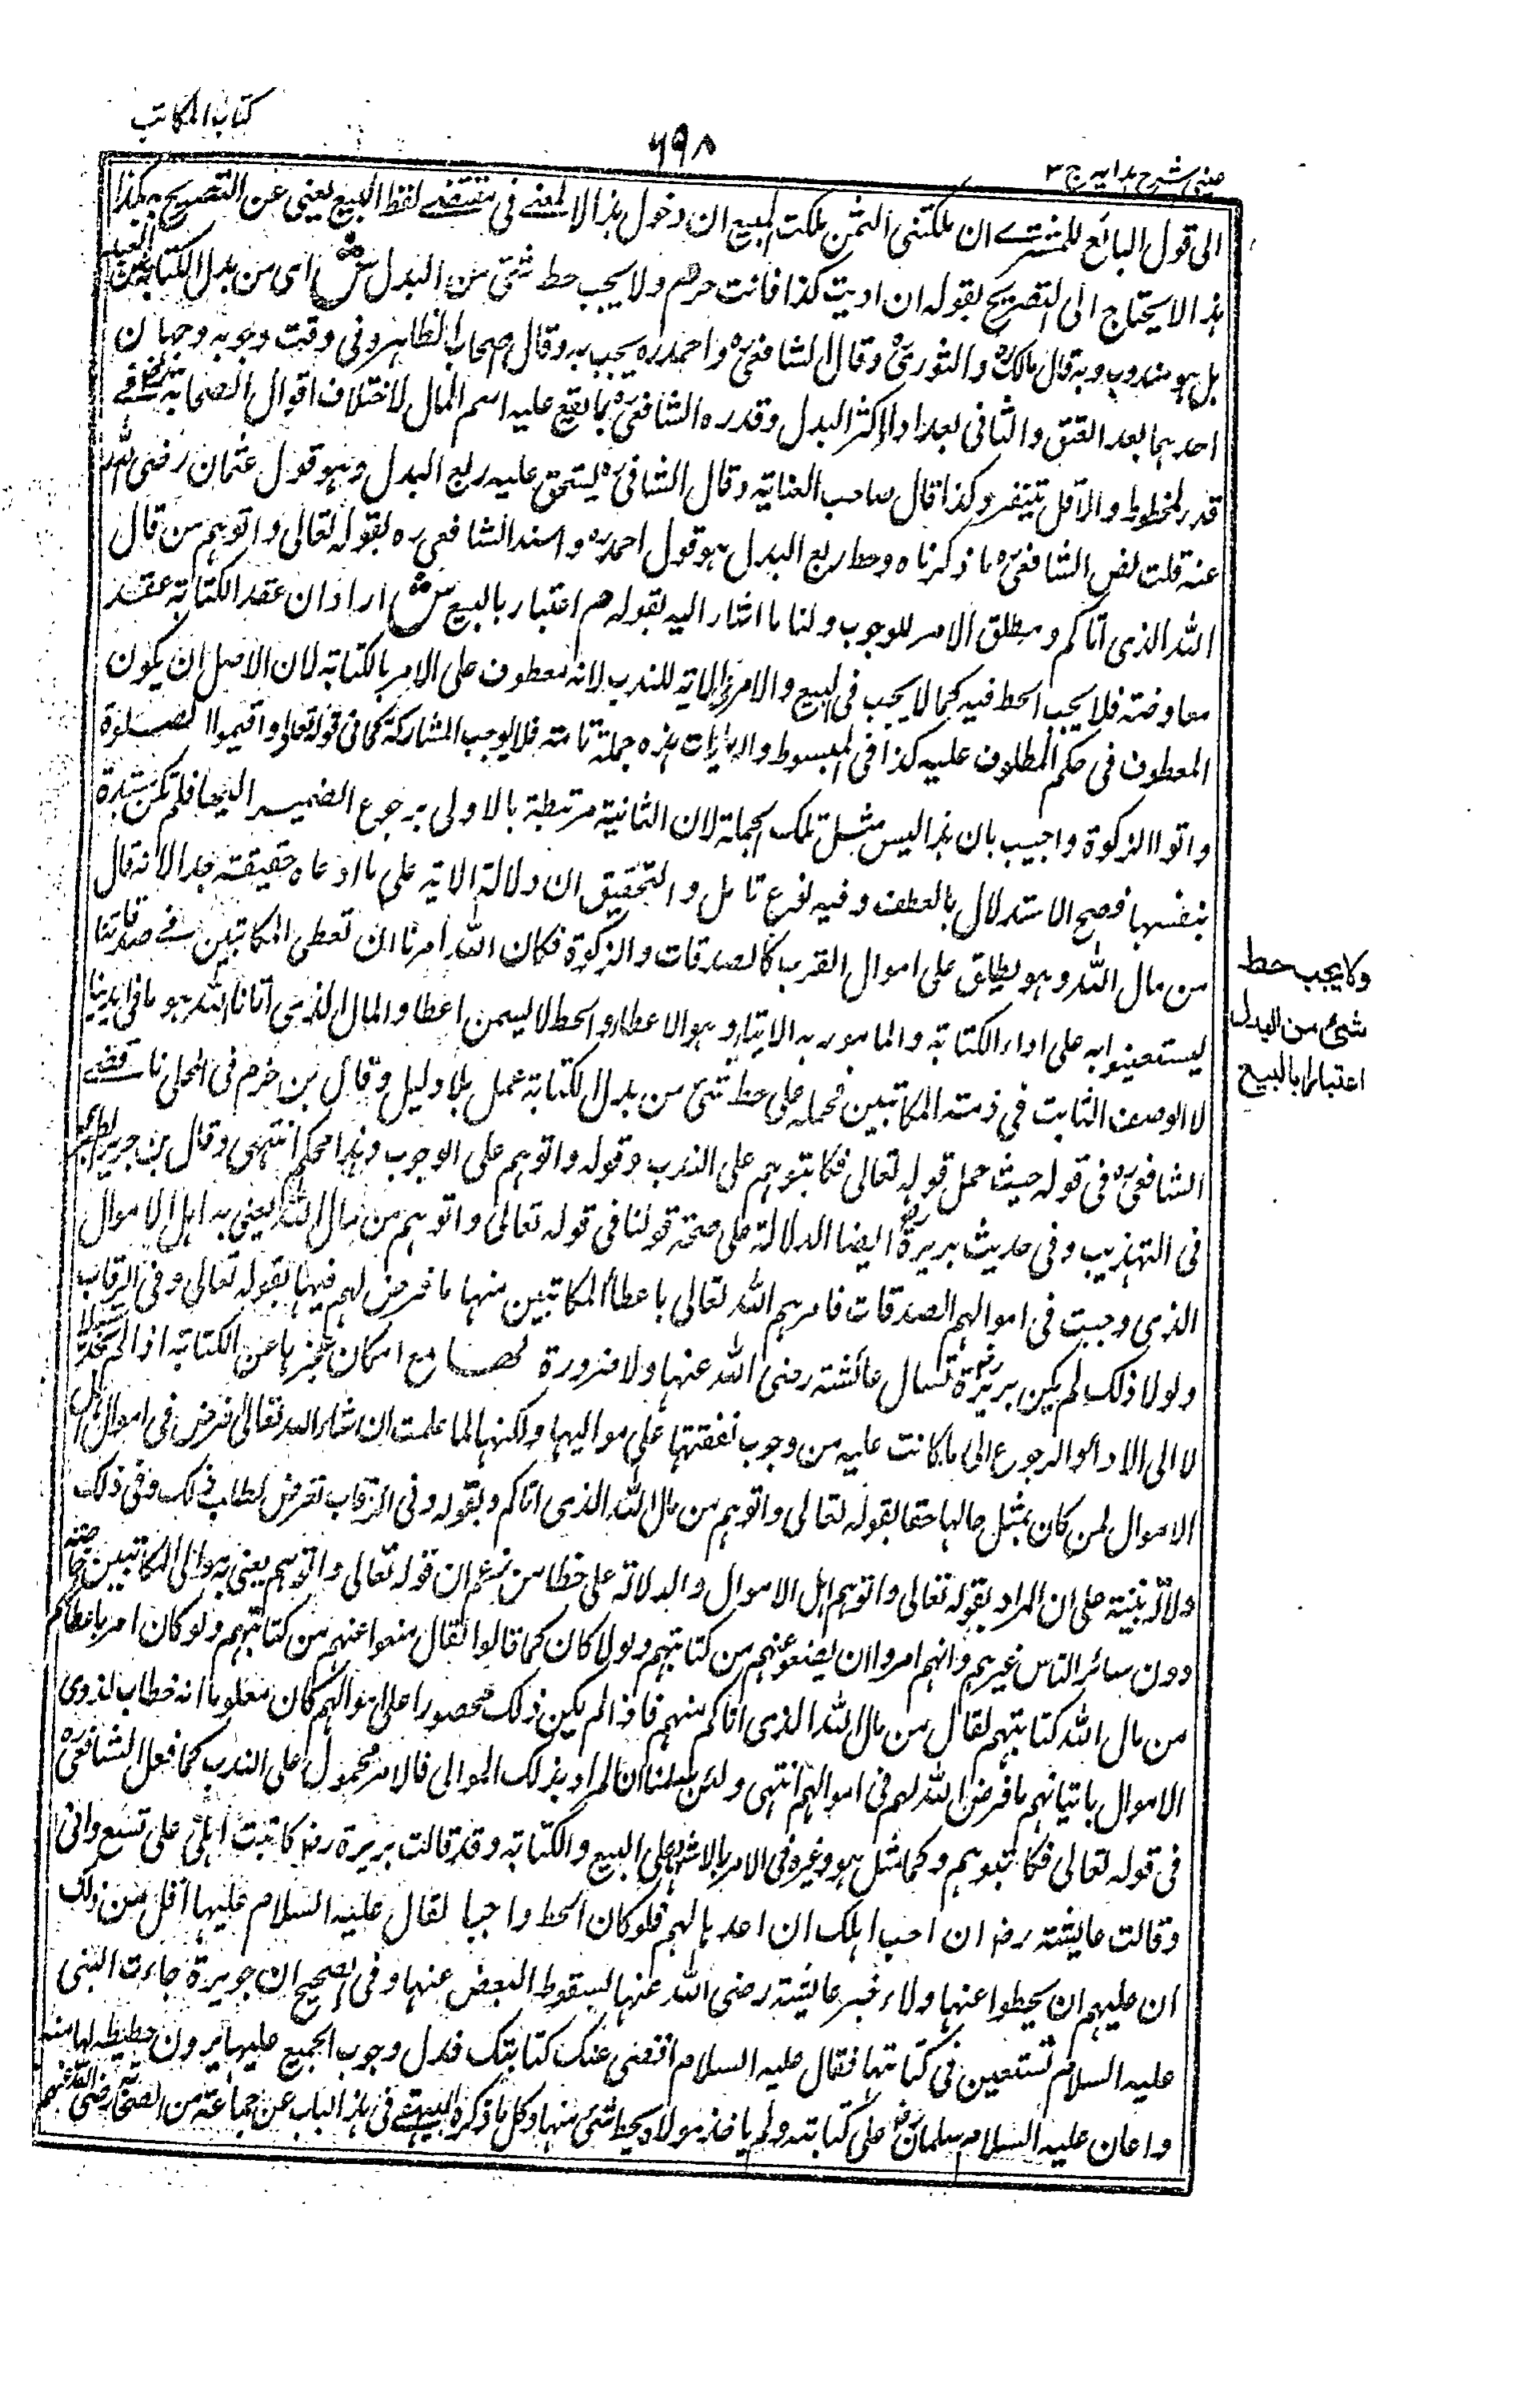 كتاب المكاتب
٦٩٨
عيني شرح هدايه ج ٣
الى قول البائع للمشترى ان ملكتنى الثمن ملكت المبيع ان دخول هذا لا لمعنى فى مقتضى لفظ البيع يغنى عن التصريح به فكذا
هذا لا يحتاج الى التصريح بقوله ان اديت كذا فانت حر م ولا يجب حط شئ من البدل ش اى من بدل الكتابة عن العبد
بل هو مندوب وبه قال مالك والثورى وقال الشافعى ره واحمد ره يجب به وقال اصحاب الظاهر وفى وقت وجوبه وجهان
احدهما بعد العتق والثانى بعد اداء اكثر البدل وقدره الشافعى ره بما يقع عليه اسم المال لاختلاف اقوال الصحابة فى
قدر المحطوط والاقل متيقن وكذا قال صاحب العناية وقال الشافعى ره يستحق عليه ربع البدل وهو قول عثمان رضى الله
عنه قلت نص الشافعى ره ما ذكرناه وحط ربع البدل هو قول احمد ره واسند الشافعى ره بقوله تعالى واتوهم من مال
الله الذى اتاكم ومطلق الامر للوجوب ولنا ما اشار اليه بقوله م اعتبارا بالبيع ش اراد ان عقد الكتابة عقد
معاوضة فلا يجب الحط فيه كما لا يجب فى البيع والامر فى الاية للندب لانه معطوف على الامر بالكتابة لان الاصل ان يكون
المعطوف فى حكم المعطوف عليه كذا فى المبسوط والايات هذه جملة تامة فلا يوجب المشاركة كما فى قوله تعالى واقيموا الصلوة
واتوا الزكوة واجيب بان هذا ليس مثل تلك الجملة لان الثانية مرتبطة بالاولى برجوع الضمير اليها فلم تكن مستبدة
بنفسها فصح الاستدلال بالعطف وفيه نوع تامل والتحقيق ان دلالة الاية على ما ادعاه حقيقة جدا لانه قال
من مال الله وهو يطلق على اموال القرب كالصدقات والزكوة فكان الله امرنا ان نعطى المكاتبين فى صدقاتنا
ليستعينوا به على اداء الكتابة والمامور به الايتاء وهو الاعطاء والحط لا يسمى اعطاء والمال الذى اتانا الله هو ما فى ايدينا
لا الوصف الثابت فى ذمة المكاتبين فحمله على حط شئ من بدل الكتابة عمل بلا دليل وقال بن حزم فى المحلى ناقض
الشافعى ره فى قوله حيث حمل قوله تعالى فكاتبوهم على الندب وقوله واتوهم على الوجوب وهذا تحكم انتهى وقال بن جرير الطبرى
فى التهذيب وفى حديث بريرة رض ايضا الدلالة على صحة قولنا فى قوله تعالى واتوهم من مال الله يعنى به اهل الاموال
الذى وجبت فى اموالهم الصدقات فامرهم الله تعالى باعطاء المكاتبين منها ما فرض لهم فيها بقوله تعالى وفى الرقاب
ولولا ذلك لم يكن بريرة رض تسال عائشة رضى الله عنها ولا ضرورة لها مع امكان عجزها عن الكتابة اذا لم تجد
لا الى الاداء والرجوع الى ما كانت عليه من وجوب نفقتها على مواليها ولكنها لما علمت ان شاء الله تعالى فرض فى اموال اهل
الاموال لمن كان بمثل حالها حقا بقوله تعالى واتوهم من مال الله الذى اتاكم وبقوله وفى الرقاب تعرض لطلب ذلك وفى ذلك
دلالة بينة على ان المراد بقوله تعالى واتوهم اهل الاموال والدلالة على خطا من زعم ان قوله تعالى واتوهم يعنى به موالى المكاتبين خاصة
دون سائر الناس غيرهم وانهم امروا ان يضعوا عنهم من كتابتهم ولو لا كان كما قالوا لقال ضعوا عنهم من كتابتهم ولو كان امر باعطائهم
من مال الله كتابتهم لقال من مال الله الذى اتاكم منهم فاذا لم يكن ذلك محصورا على اموالهم كان معلوما انه خطاب لذوى
الاموال بايتائهم ما فرض الله لهم فى اموالهم انتهى ولئن سلمنا ان المراد بذلك الموالى فالامر محمول على الندب كما فعل الشافعى ره
فى قوله تعالى فكاتبوهم وكما مثل هو وغيره فى الامر بالاشهاد على البيع والكتابة وقد قالت بريرة رض كاتبت اهلى على تسع واقى
وقالت عايشة رض ان احب اهلك ان اعدها لهم فلو كان الحط واجبا لقال عليه السلام عليها اقل من ذلك
ان عليهم ان يحطوا عنها ولاخبر عايشة رضى الله عنها بسقوط البعض عنها وفى الصحيح ان جويرة جاءت النبى
عليه السلام تستعين فى كتابتها فقال عليه السلام اقضى عنك كتابتك فدل وجوب الجميع عليها بدون حطيطة لها منه
واعان عليه السلام سلمان رض على كتابته ولم ياخذ مولاه بحط شئ منها وكل ما ذكره البيهقى فى هذا الباب عن جماعة من الصحابة رضى الله عنهم
ولا يجب حط
شئ من البدل
اعتبارا بالبيع